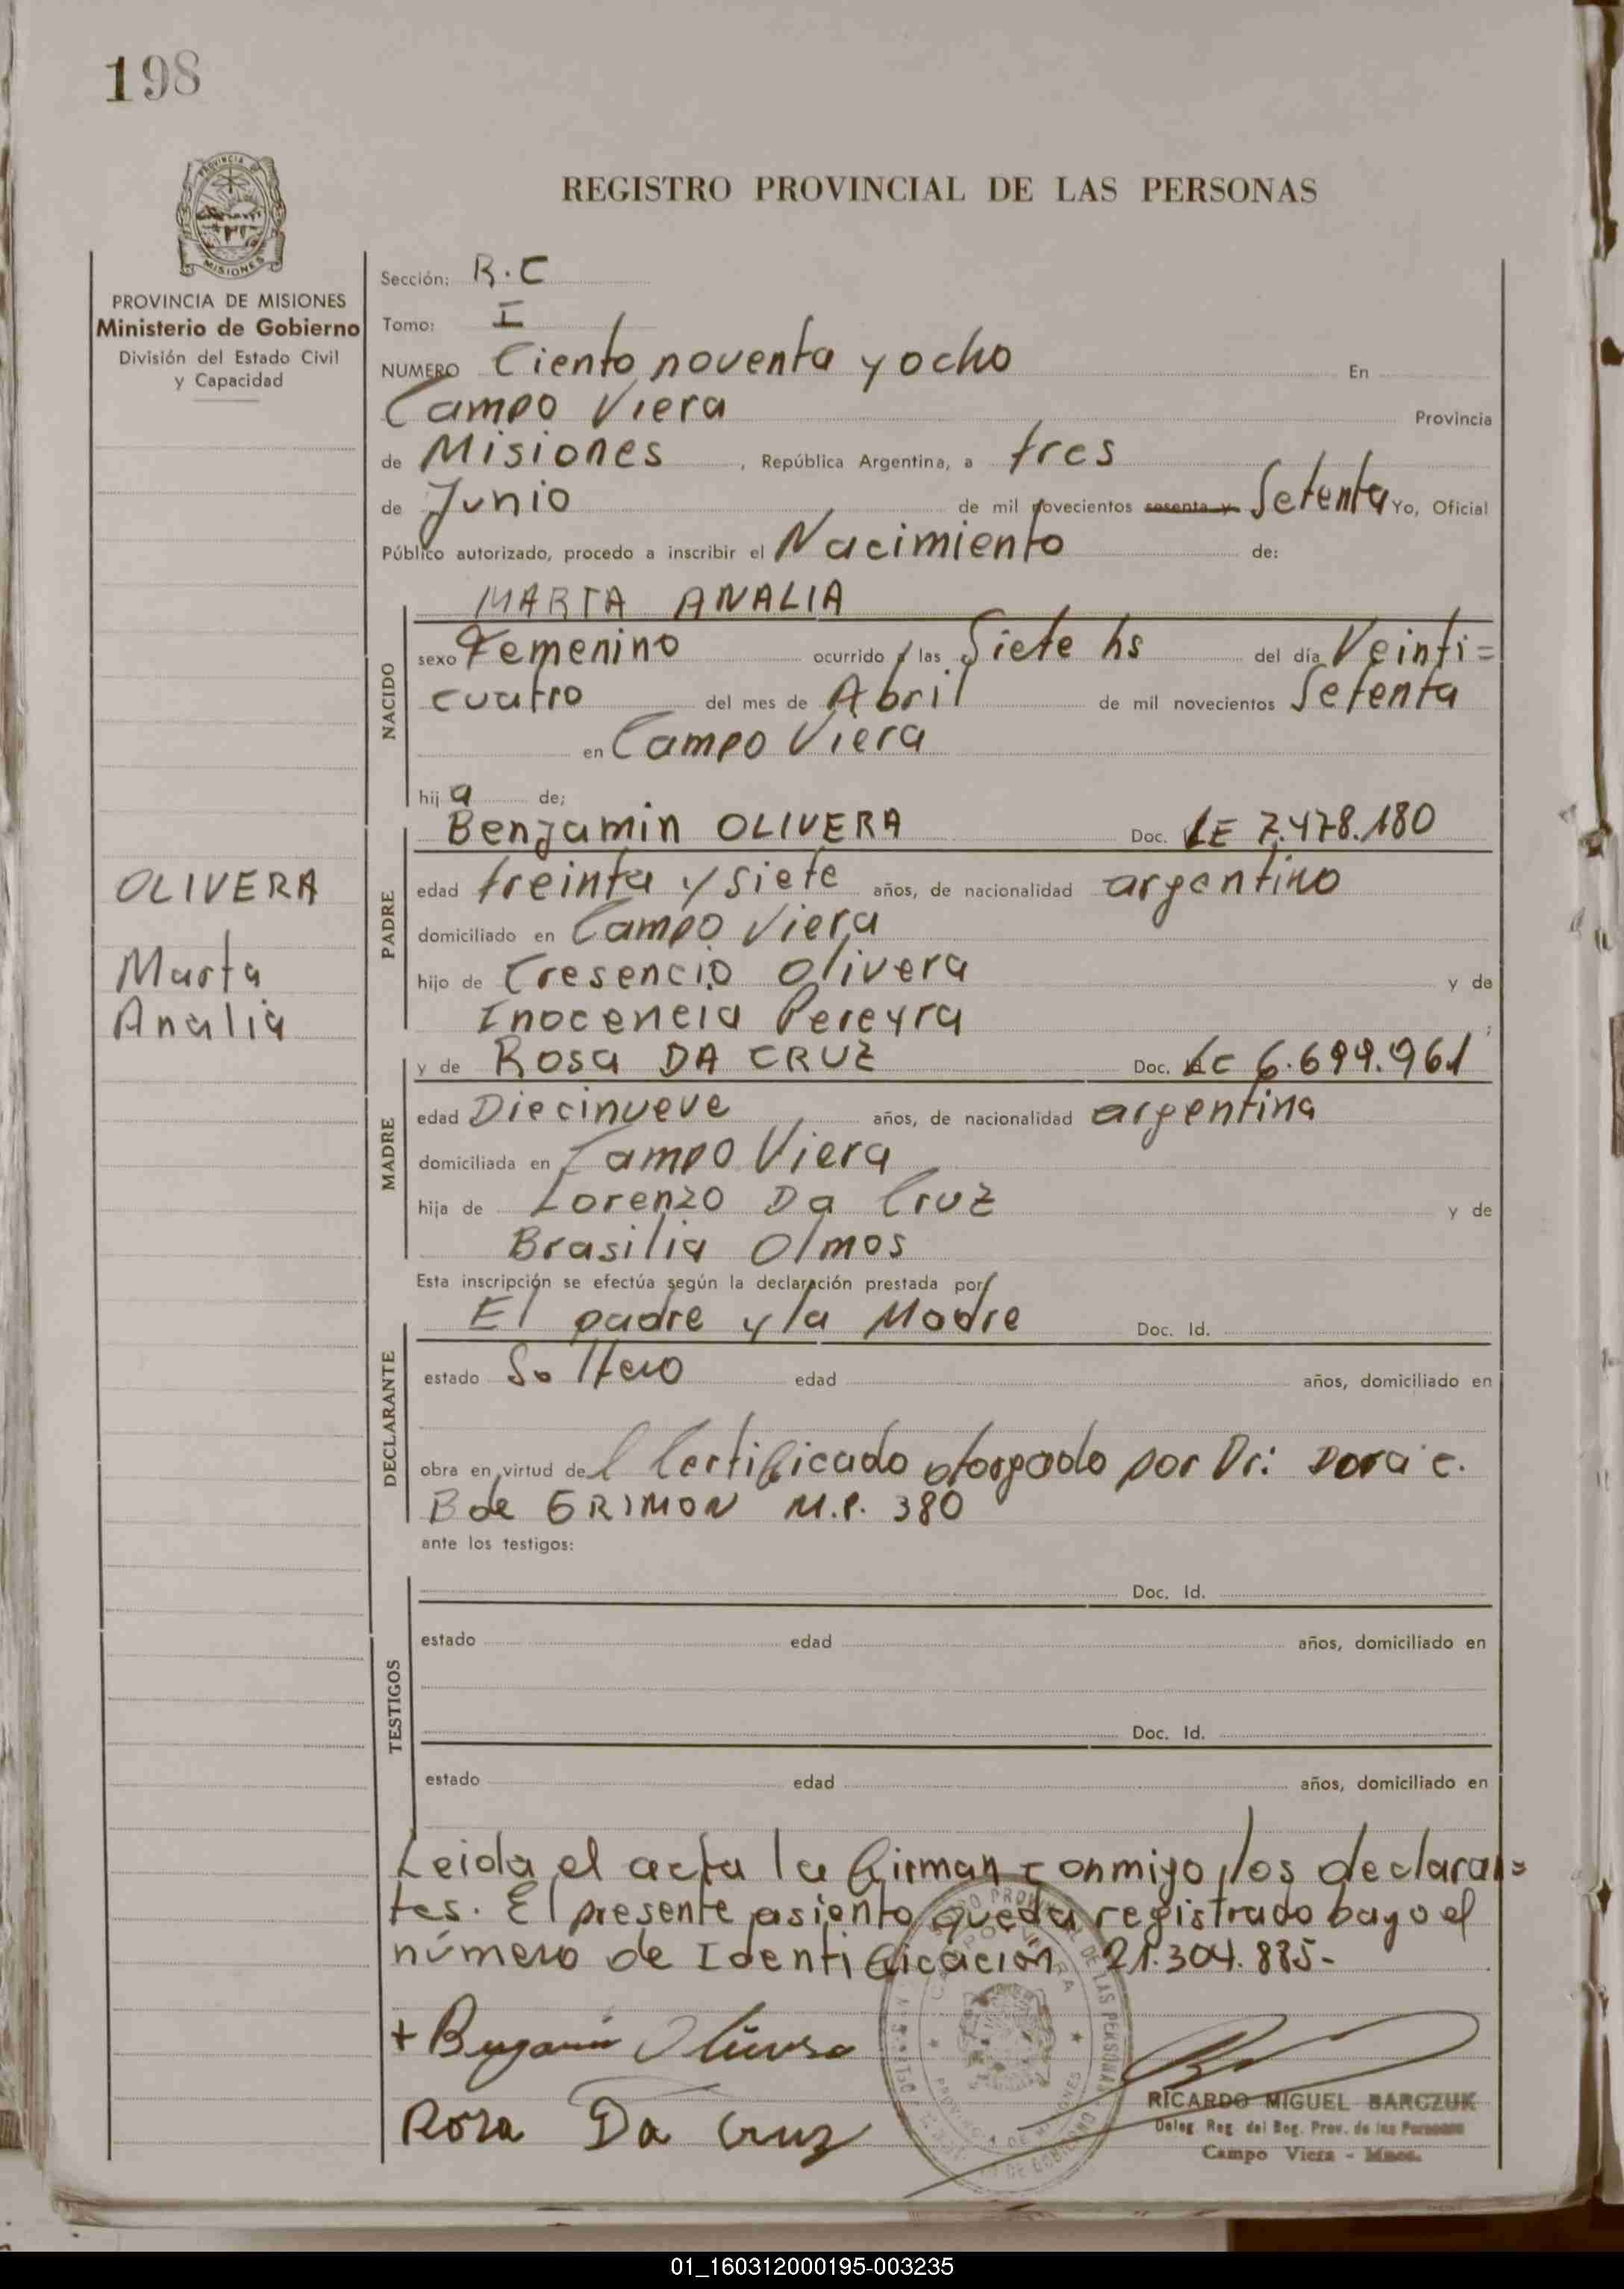 198
PROVINCIA DE MISIONES
Ministerio de Gobierno
División del Estado Civil
y Capacidad
REGISTRO PROVINCIAL DE LAS PERSONAS
Sección: R.C
Tomo: I
NUMERO Ciento noventa y ocho En
Campo Viera Provincia
de Misiones, República Argentina, a tres
de Junio de mil novecientos sesenta y Setenta Yo, Oficial
Público autorizado, procedo a inscribir el Nacimiento de:
NACIDO
MARTA ANALIA
sexo Femenino ocurrido a las Siete hs del día Veinti=
cuatro del mes de Abril de mil novecientos Setenta
en Campo Viera
hija de;
PADRE
Benjamin OLIVERA Doc. LE 7.478.180
edad treinta y siete años, de nacionalidad argentino
domiciliado en Campo Viera
hijo de Cresencio Olivera y de
Inocencia Pereyra;
OLIVERA
Marta
Analia
MADRE
y de Rosa DA CRUZ Doc. LC 6.699.961
edad Diecinueve años, de nacionalidad argentina
domiciliada en Campo Viera
hija de Lorenzo Da Cruz y de
Brasilia Olmos
Esta inscripción se efectúa según la declaración prestada por
DECLARANTE
El padre y la Madre Doc. Id.
estado Soltero edad años, domiciliado en
obra en virtud del Certificado otorgado por Dr: Dora C.
B de GRIMON M.P. 380
ante los testigos:
TESTIGOS
Doc. Id.
estado edad años, domiciliado en
Doc. Id.
estado edad años, domiciliado en
Leida el acta la firman conmigo, los declaran=
tes. El presente asiento queda registrado bayo el
número de Identificación 21.304.885-
+ Benjamin Olivera
Rosa Da Cruz
RICARDO MIGUEL BARCZUK
Deleg. Reg. del Reg. Prov. de las Personas
Campo Viera - Mnes.
01_160312000195-003235